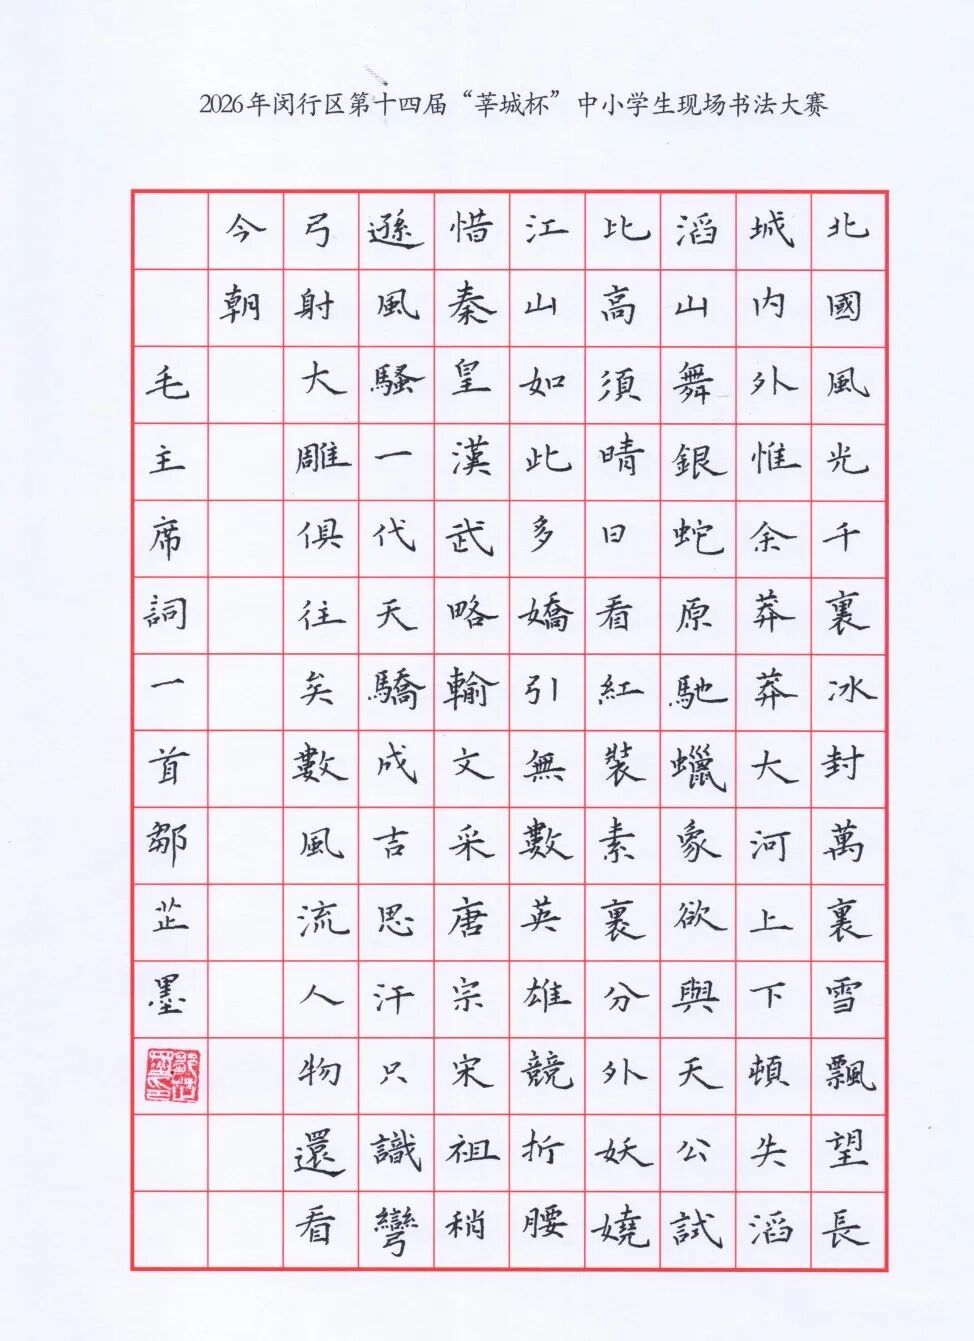 2026年闵行区第十四届“莘城杯”中小学生现场书法大赛
北國風光千裏冰封萬裏雪飄望長
城内外惟余莽莽大河上下頓失滔
滔山舞銀蛇原馳蠟象欲與天公試
比高須晴日看紅裝素裹分外妖嬈
江山如此多嬌引無數英雄競折腰
惜秦皇漢武略輸文采唐宗宋祖稍
遜風騷一代天驕成吉思汗只識彎
弓射大雕俱往矣數風流人物還看
今朝
毛主席詞一首鄒芷墨